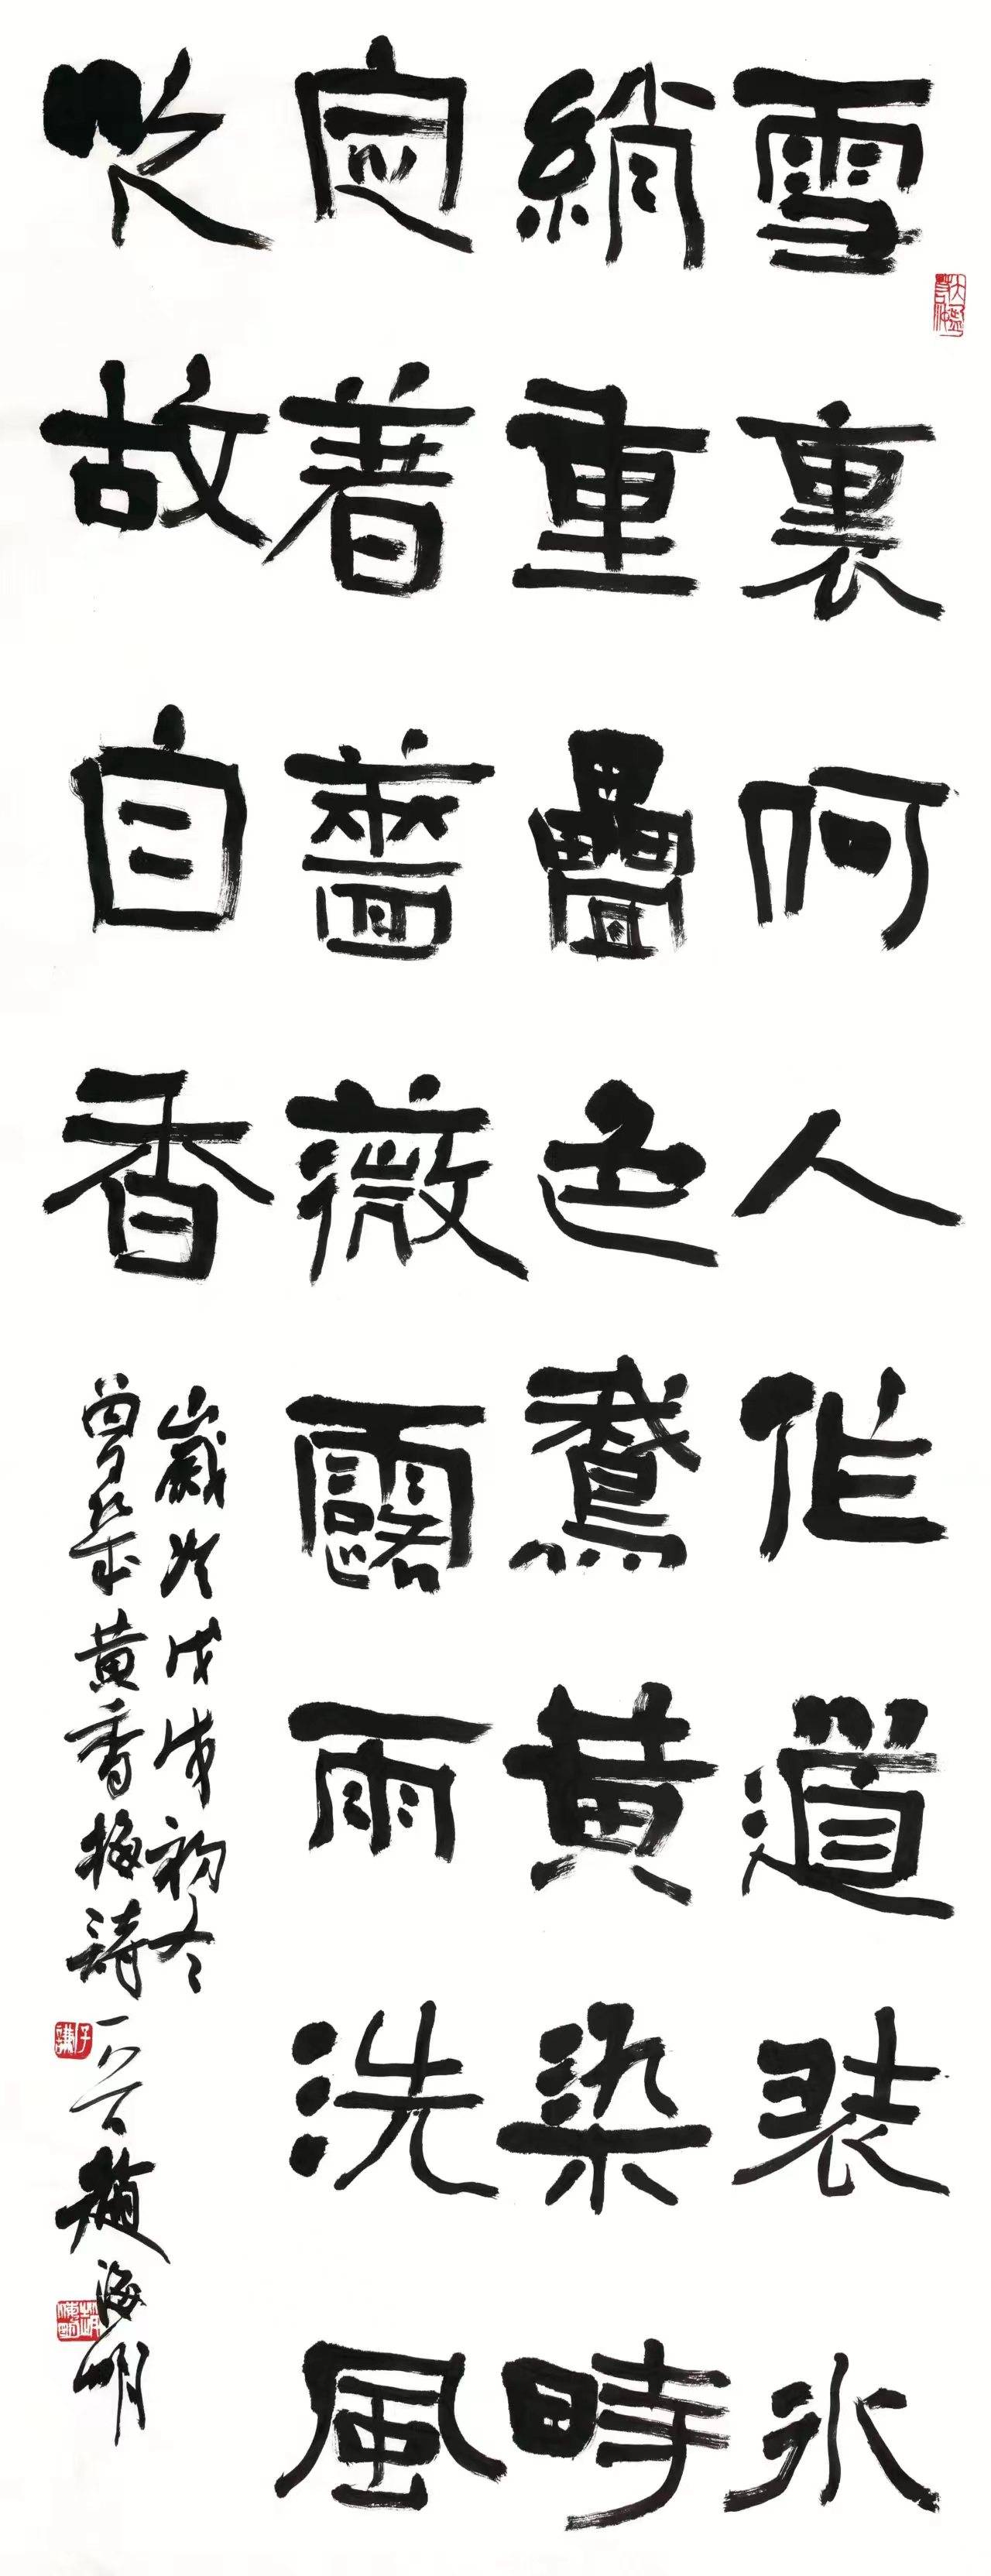 雪裏何人作道裝冰
綃重疊色鵝黃染時
定著薔薇露雨洗風
吹故自香
歲次戊戌初冬
曾幾黃香梅詩 趙海明